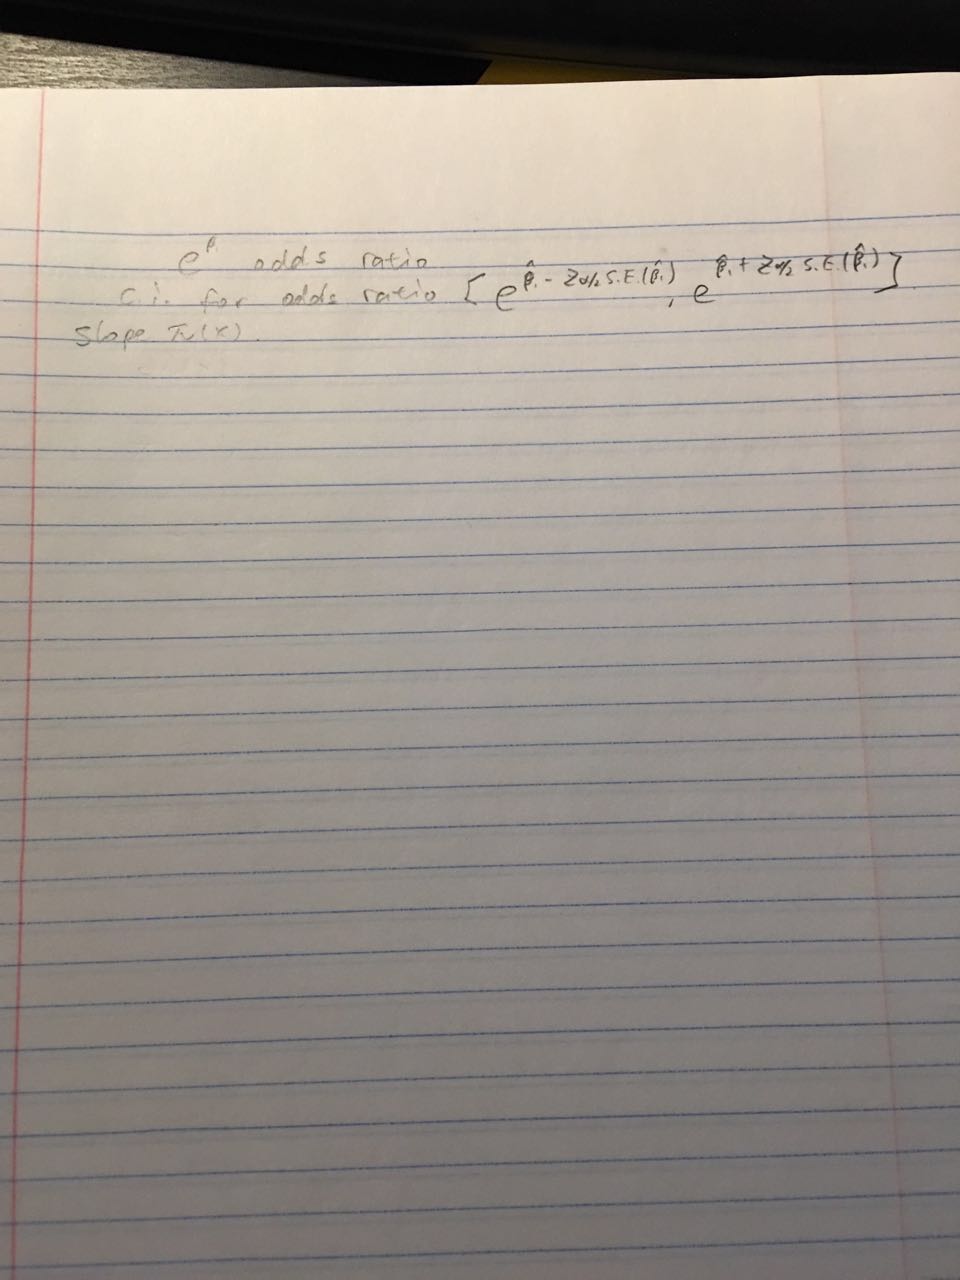 e^β₁ odds ratio
C.i. for odds ratio [e^β̂₁ - Zα/2 S.E.(β̂₁), e^β̂₁ + Zα/2 S.E.(β̂₁)]
Slope π(x).